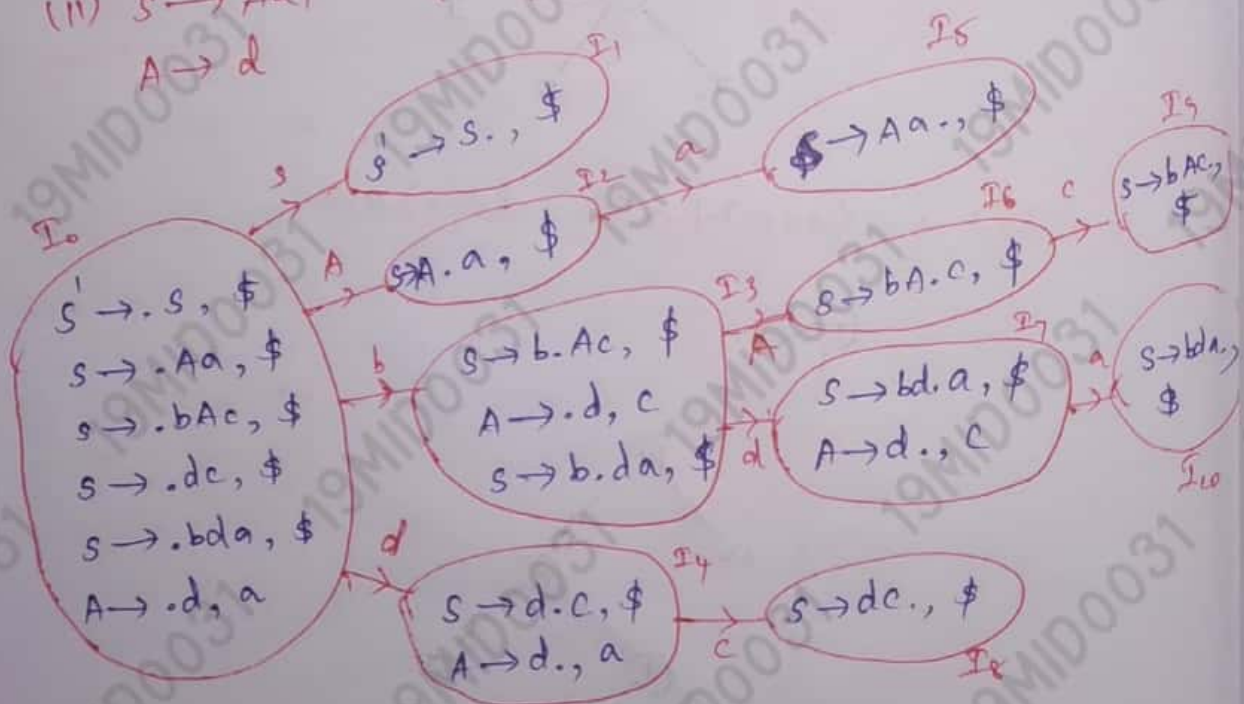 (11) S →
A → d
I0
S' → . S, $
S → . Aa, $
S → . bAc, $
S → . dc, $
S → . bda, $
A → . d, a
S
I1
S' → S. , $
A
I2
S→A . a, $
a
I5
S → Aa. , $
b
I3
S → b . Ac, $
A → . d, c
S → b . da, $
A
I6
S → bA . c, $
c
I9
S → bAc. ,
$
d
I7
S → bd . a, $
A → d . , c
a
S → bda. ,
$
I10
d
I4
S → d . c, $
A → d . , a
c
S → dc. , $
I8
19MID0031